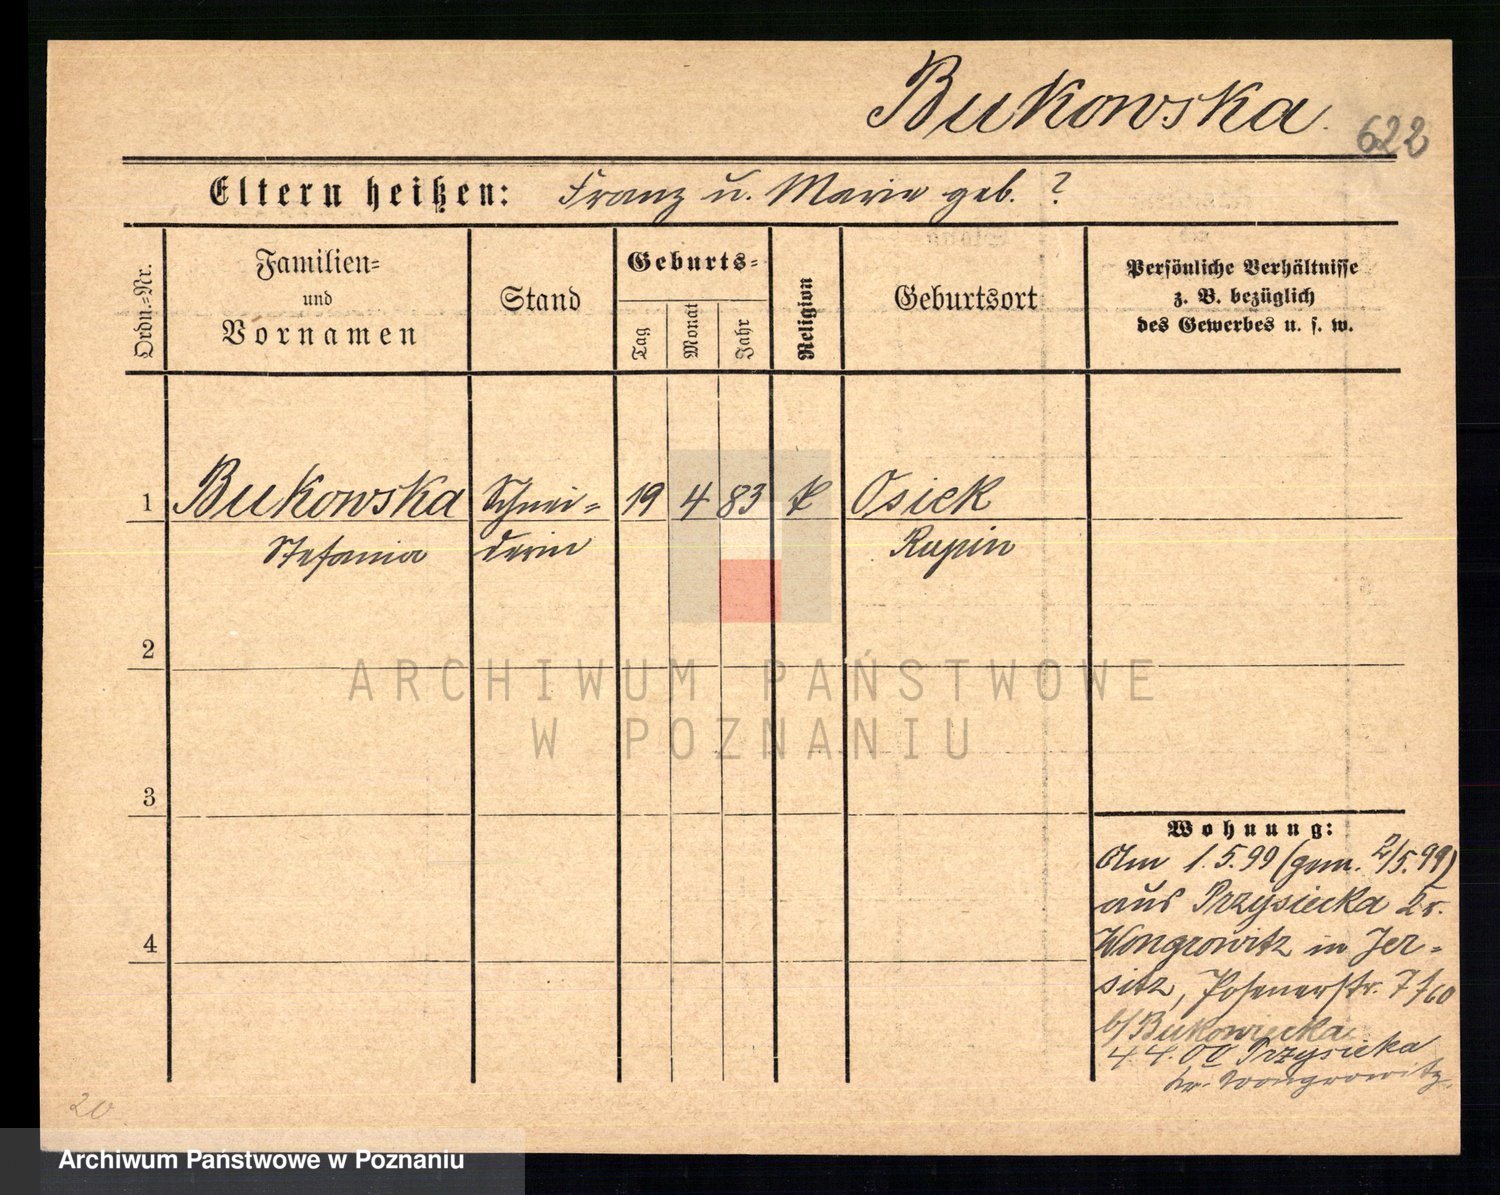 Bukowska.
622
Eltern heißen: Franz u. Marie geb. ?
Ordn.=Nr.
Familien=
und
Vornamen
Stand
Geburts=
Tag
Monat
Jahr
Religion
Geburtsort
Persönliche Verhältnisse
z. B. bezüglich
des Gewerbes u. s. w.
1 Bukowska Schnei= 19 4 83 k Osiek
Stefania derin Rupin
2
ARCHIWUM PAŃSTWOWE
W POZNANIU
3
Wohnung:
Am 1.5.99 (gem. 2/5.99)
aus Przysiecka Kr.
4
Wongrowitz in Jer-
sitz, Posenerstr. 7
b/ Bukowiecka
4.4.00 Przysieka
Kr. Wongrowitz.
20
Archiwum Państwowe w Poznaniu